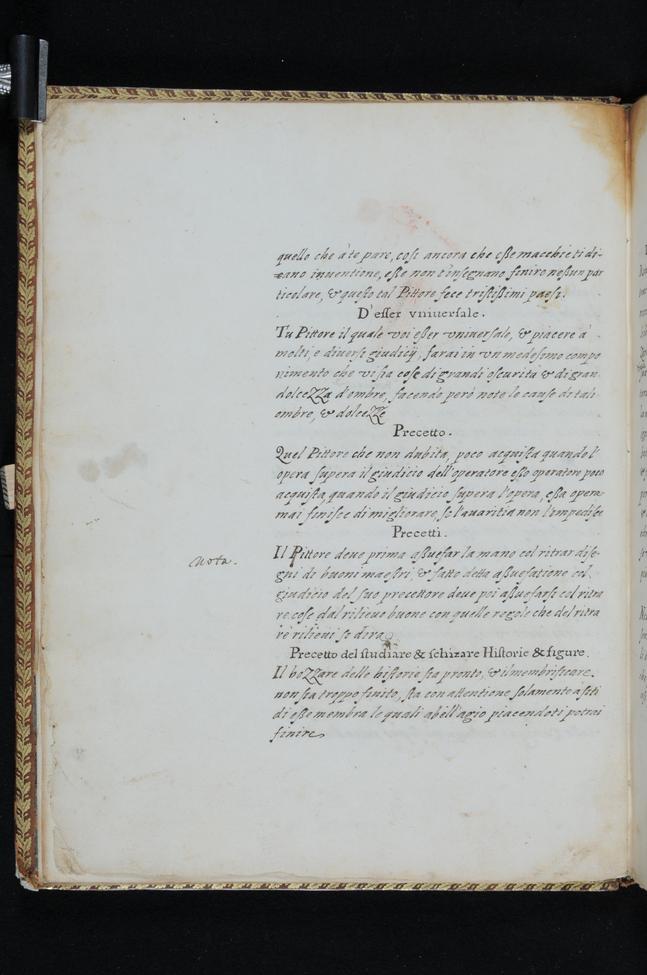 quello che à te pare, cosi ancora che eße macchie ti di-
eano inuentione, eße non t'insegnano finire neßun par
ticolare, & questo tal Pittore fece tristißimi paesi.
D'esser vniuersale.
Tu Pittore il quale voi eßer vniuersale, & piacere à
molti, e diuersi giudicij, farai in vn medesimo compo
nimento che vi sia cose di grandi oscurità & di gran
dolcezza d'ombre, facendo però note le cause di tali
ombre, & dolcezze
Precetto.
Quel Pittore che non dubita, poco acquista quando l'
opera supera il giudicio dell'operatore eßo operatore poco
acquista quando il giudicio supera l'opera, eßa opera
mai finisce di migliorare, se l'auaritia non l'impedisce
Precetti.
nota.
Il Pittore deue prima aßuefar la mano col ritrar dise-
gni di buoni maestri, & fatto detta aßuefatione col
giudicio del suo precettore deue poi aßuefarsi col ritra
re cose dal rilieuo buone con quelle regole che del ritra
re rilieui se dira
Precetto del studiare & schizare Historie & figure.
Il bozzare delle historie sia pronto, & il membrificare
non sia troppo finito, sta con attentione solamente à siti
di eße membra le quali àbell'agio piacendoti potrai
finire